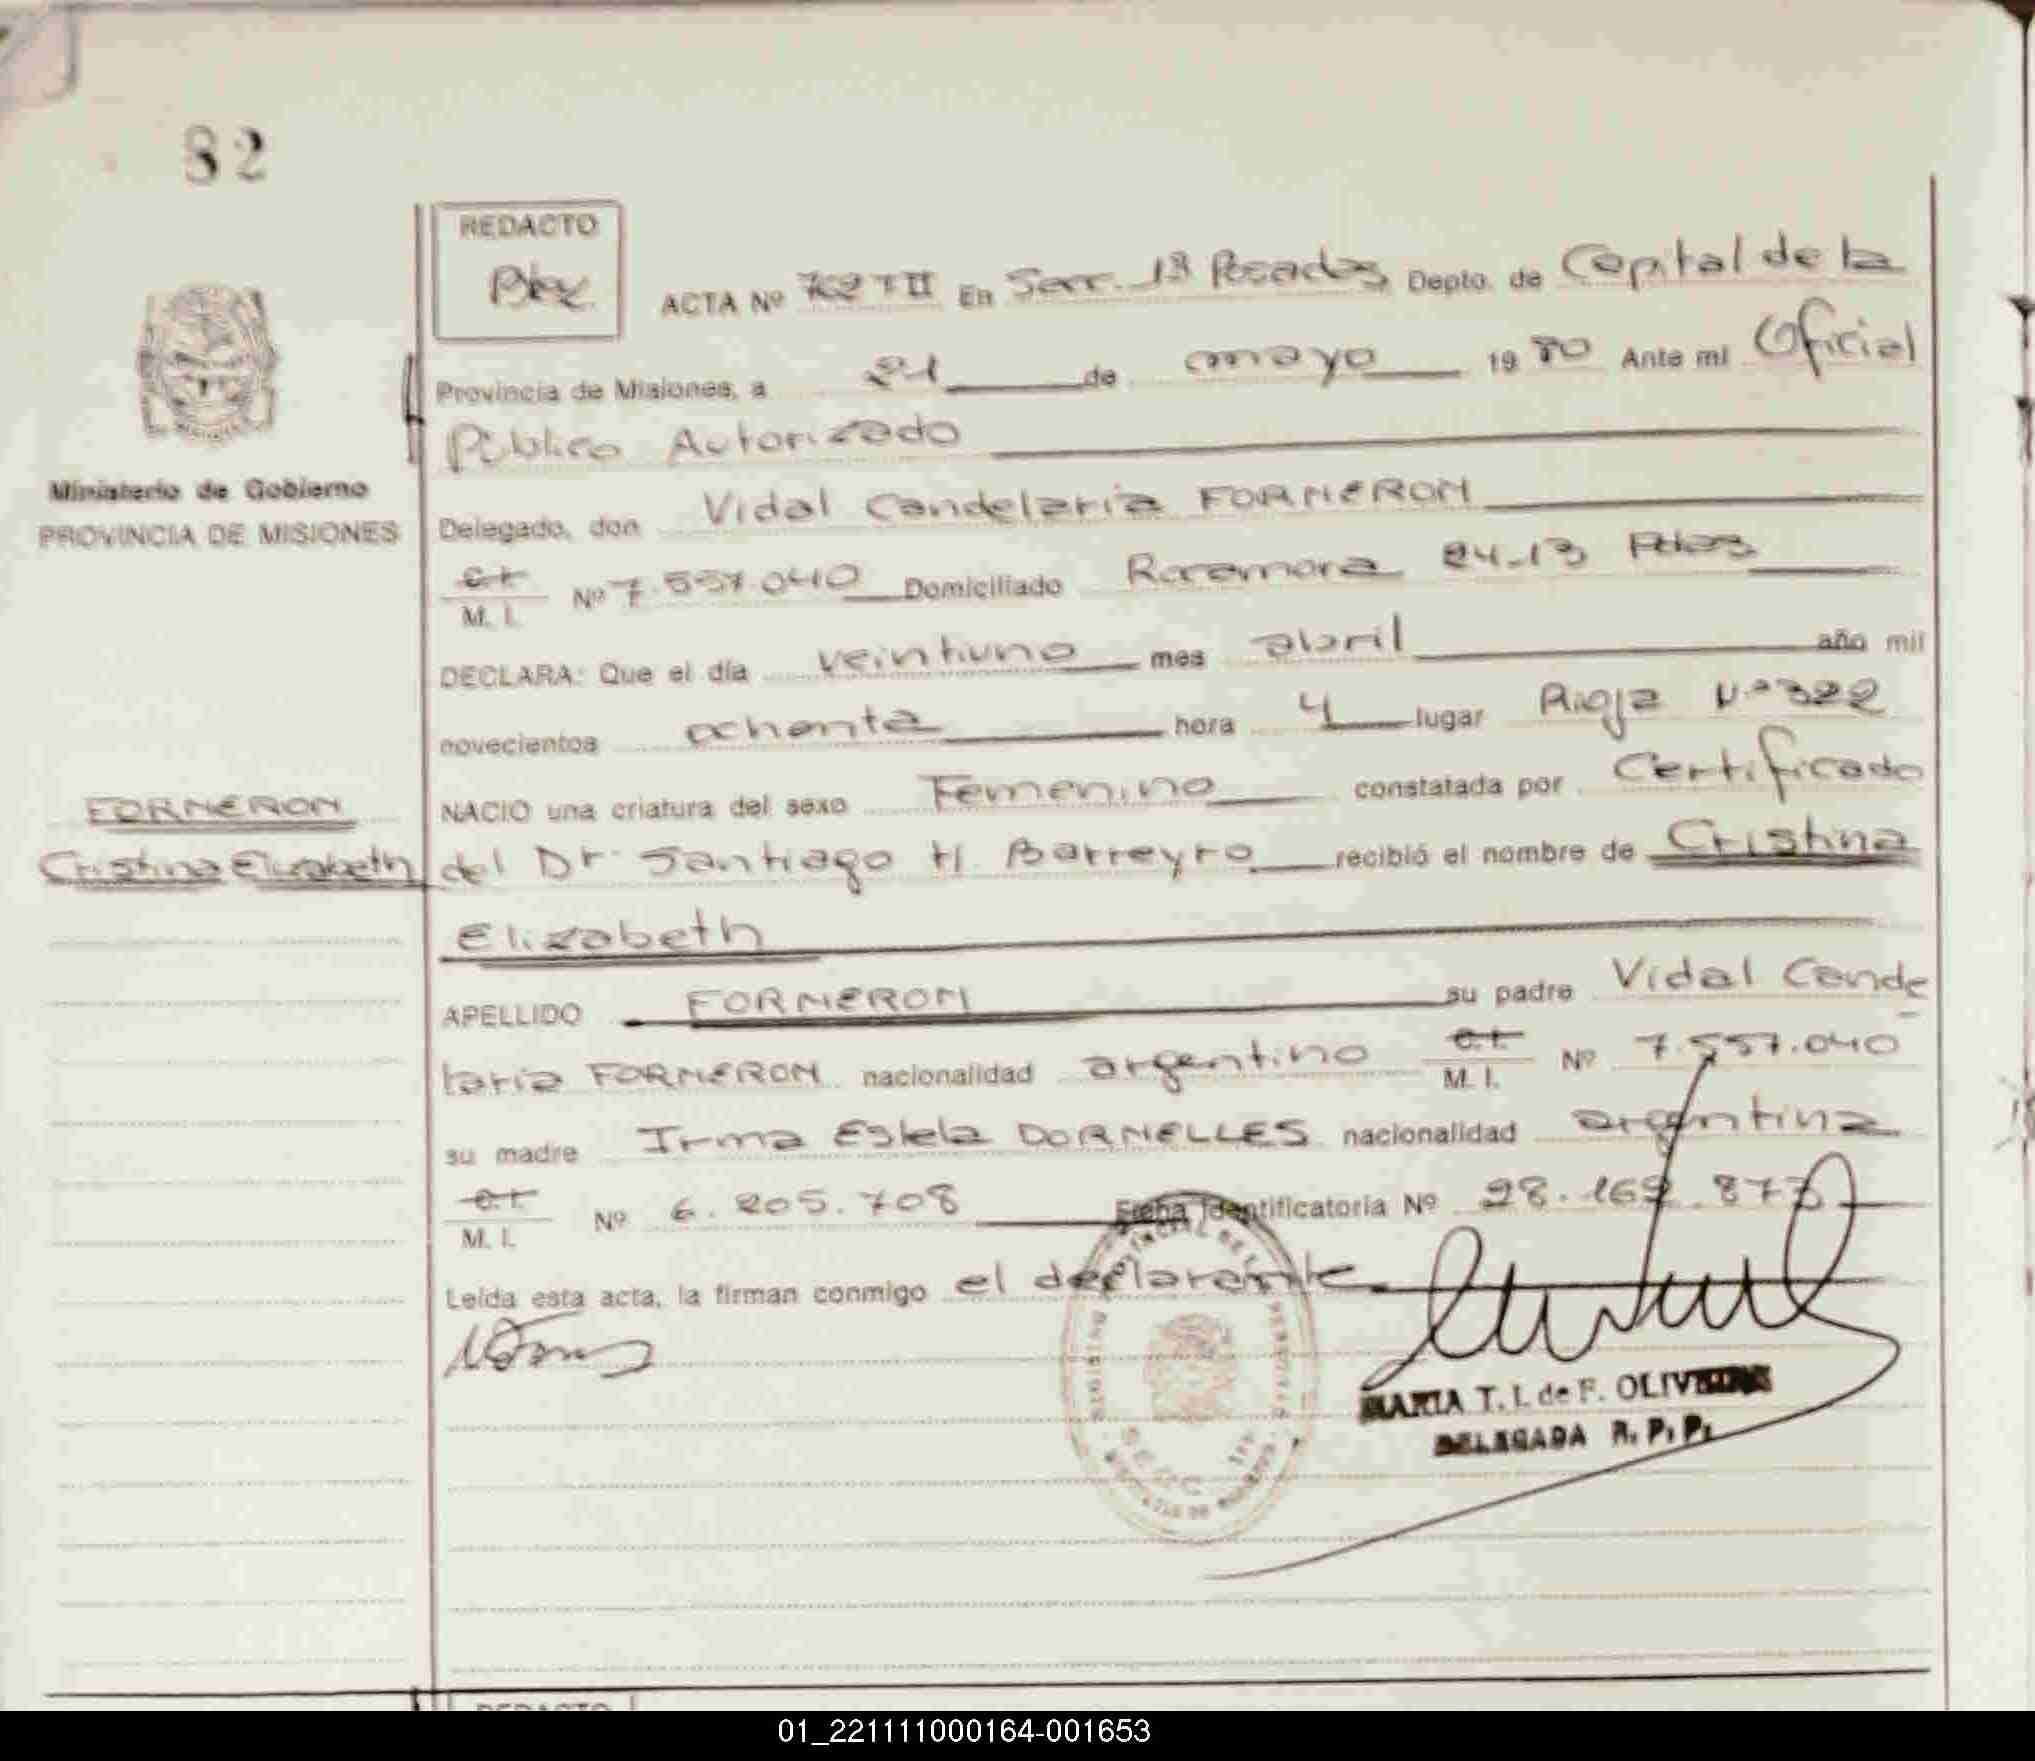 82
REDACTO
ACTA Nº 702 TII En Secc. 1ª Posadas Depto. de Capital de la
Provincia de Misiones, a 21 de mayo 19 80 Ante mi Oficial
Público Autorizado
Ministerio de Gobierno
PROVINCIA DE MISIONES
Delegado, don Vidal Candelaria FORNERON
C.I. M. I. Nº 7.557.040 Domiciliado Rocamora 24-13 Pdas
DECLARA: Que el día veintiuno mes abril año mil
novecientos ochenta hora 4 lugar Rioja Nº 322
NACIO una criatura del sexo Femenino constatada por Certificado
FORNERON
Cristina Elizabeth
del Dr. Santiago H. Barreyro recibió el nombre de Cristina
Elizabeth
APELLIDO FORNERON su padre Vidal Cande
laria FORNERON nacionalidad argentino C.I. M. I. Nº 7.557.040
su madre Irma Estela DORNELLES nacionalidad argentina
C.I. M. I. Nº 6.205.708 Ficha Identificatoria Nº 28.169.873
Leída esta acta, la firman conmigo el declarante
MARIA T. I. de F. OLIVEIRA
DELEGADA R. P. P.
REDACTO
01_221111000164-001653